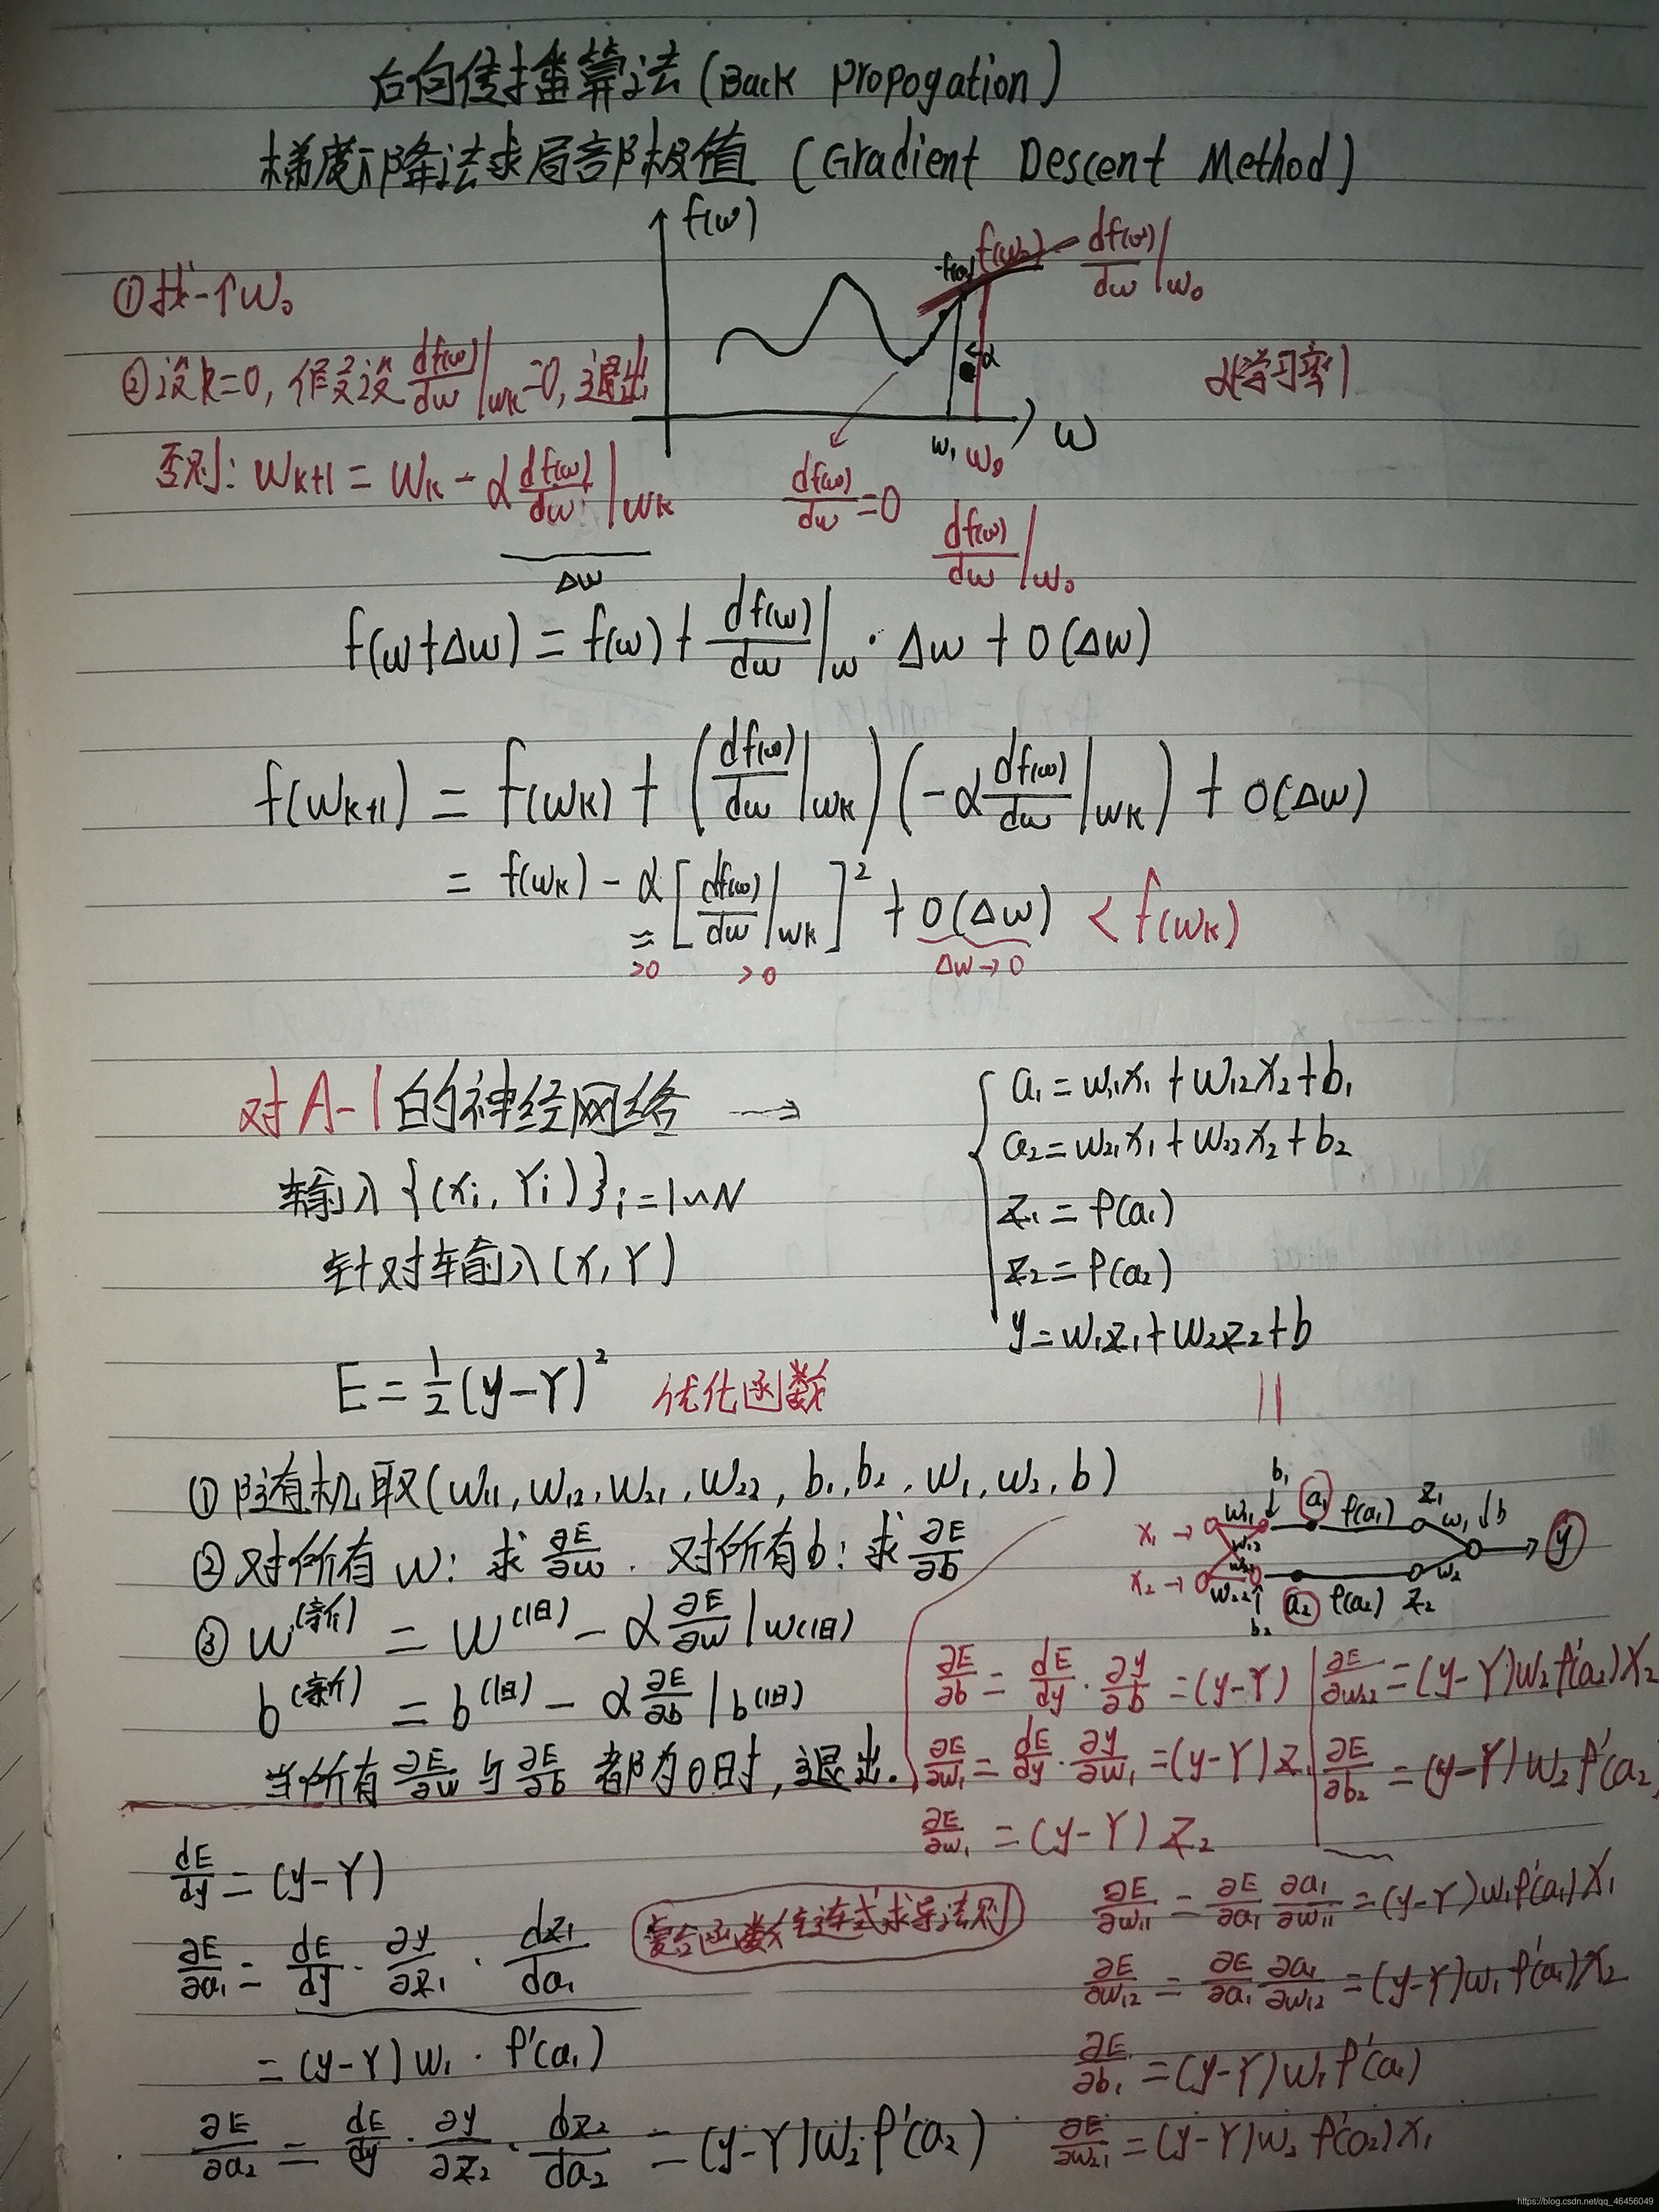 后向传播算法(Back Propogation)
梯度下降法求局部极值 (Gradient Descent Method)
f(w)
f(w₁) f(w₀) df(w)/dw|w₀
①找一个w₀
②设k=0, 假设 df(w)/dw|wk=0, 退出
α
α(学习率)
w₁ w₀ w
否则: wk+1 = wk - α df(w)/dw|wk
Δw
df(w)/dw=0
df(w)/dw|w₀
f(w+Δw) = f(w) + df(w)/dw|w · Δw + O(Δw)
f(wk+1) = f(wk) + (df(w)/dw|wk)(-α df(w)/dw|wk) + O(Δw)
= f(wk) - α[df(w)/dw|wk]² + O(Δw) < f(wk)
>0 >0 Δw→0
对A-1的神经网络 →
输入{(xi, Yi)}i=1~N
针对输入(X, Y)
E = 1/2(y-Y)² 优化函数
a₁ = w₁₁x₁ + w₁₂x₂ + b₁
a₂ = w₂₁x₁ + w₂₂x₂ + b₂
z₁ = φ(a₁)
z₂ = φ(a₂)
y = w₁z₁ + w₂z₂ + b
||
①随机取(w₁₁, w₁₂, w₂₁, w₂₂, b₁, b₂, w₁, w₂, b)
②对所有w: 求 ∂E/∂w. 对所有b: 求 ∂E/∂b
③ w(新) = w(旧) - α ∂E/∂w|w(旧)
b(新) = b(旧) - α ∂E/∂b|b(旧)
当所有 ∂E/∂w 与 ∂E/∂b 都为0时, 退出.
b₁
x₁ → w₁₁ a₁ φ(a₁) z₁ w₁ b
w₁₂ y
w₂₁
x₂ → w₂₂ a₂ φ(a₂) z₂ w₂
b₂
∂E/∂b = dE/dy · ∂y/∂b = (y-Y)
∂E/∂w₁ = dE/dy · ∂y/∂w₁ = (y-Y)z₁
∂E/∂w₁ = (y-Y)z₂
∂E/∂w₂₂ = (y-Y)w₂φ'(a₂)x₂
∂E/∂b₂ = (y-Y)w₂φ'(a₂)
dE/dy = (y-Y)
∂E/∂a₁ = dE/dy · ∂y/∂z₁ · dz₁/da₁
= (y-Y)w₁ · φ'(a₁)
∂E/∂a₂ = dE/dy · ∂y/∂z₂ · dz₂/da₂ = (y-Y)w₂φ'(a₂)
复合函数链式求导法则
∂E/∂w₁₁ = ∂E/∂a₁ ∂a₁/∂w₁₁ = (y-Y)w₁φ'(a₁)x₁
∂E/∂w₁₂ = ∂E/∂a₁ ∂a₁/∂w₁₂ = (y-Y)w₁φ'(a₁)x₂
∂E/∂b₁ = (y-Y)w₁φ'(a₁)
∂E/∂w₂₁ = (y-Y)w₂φ'(a₂)x₁
https://blog.csdn.net/qq_46456049